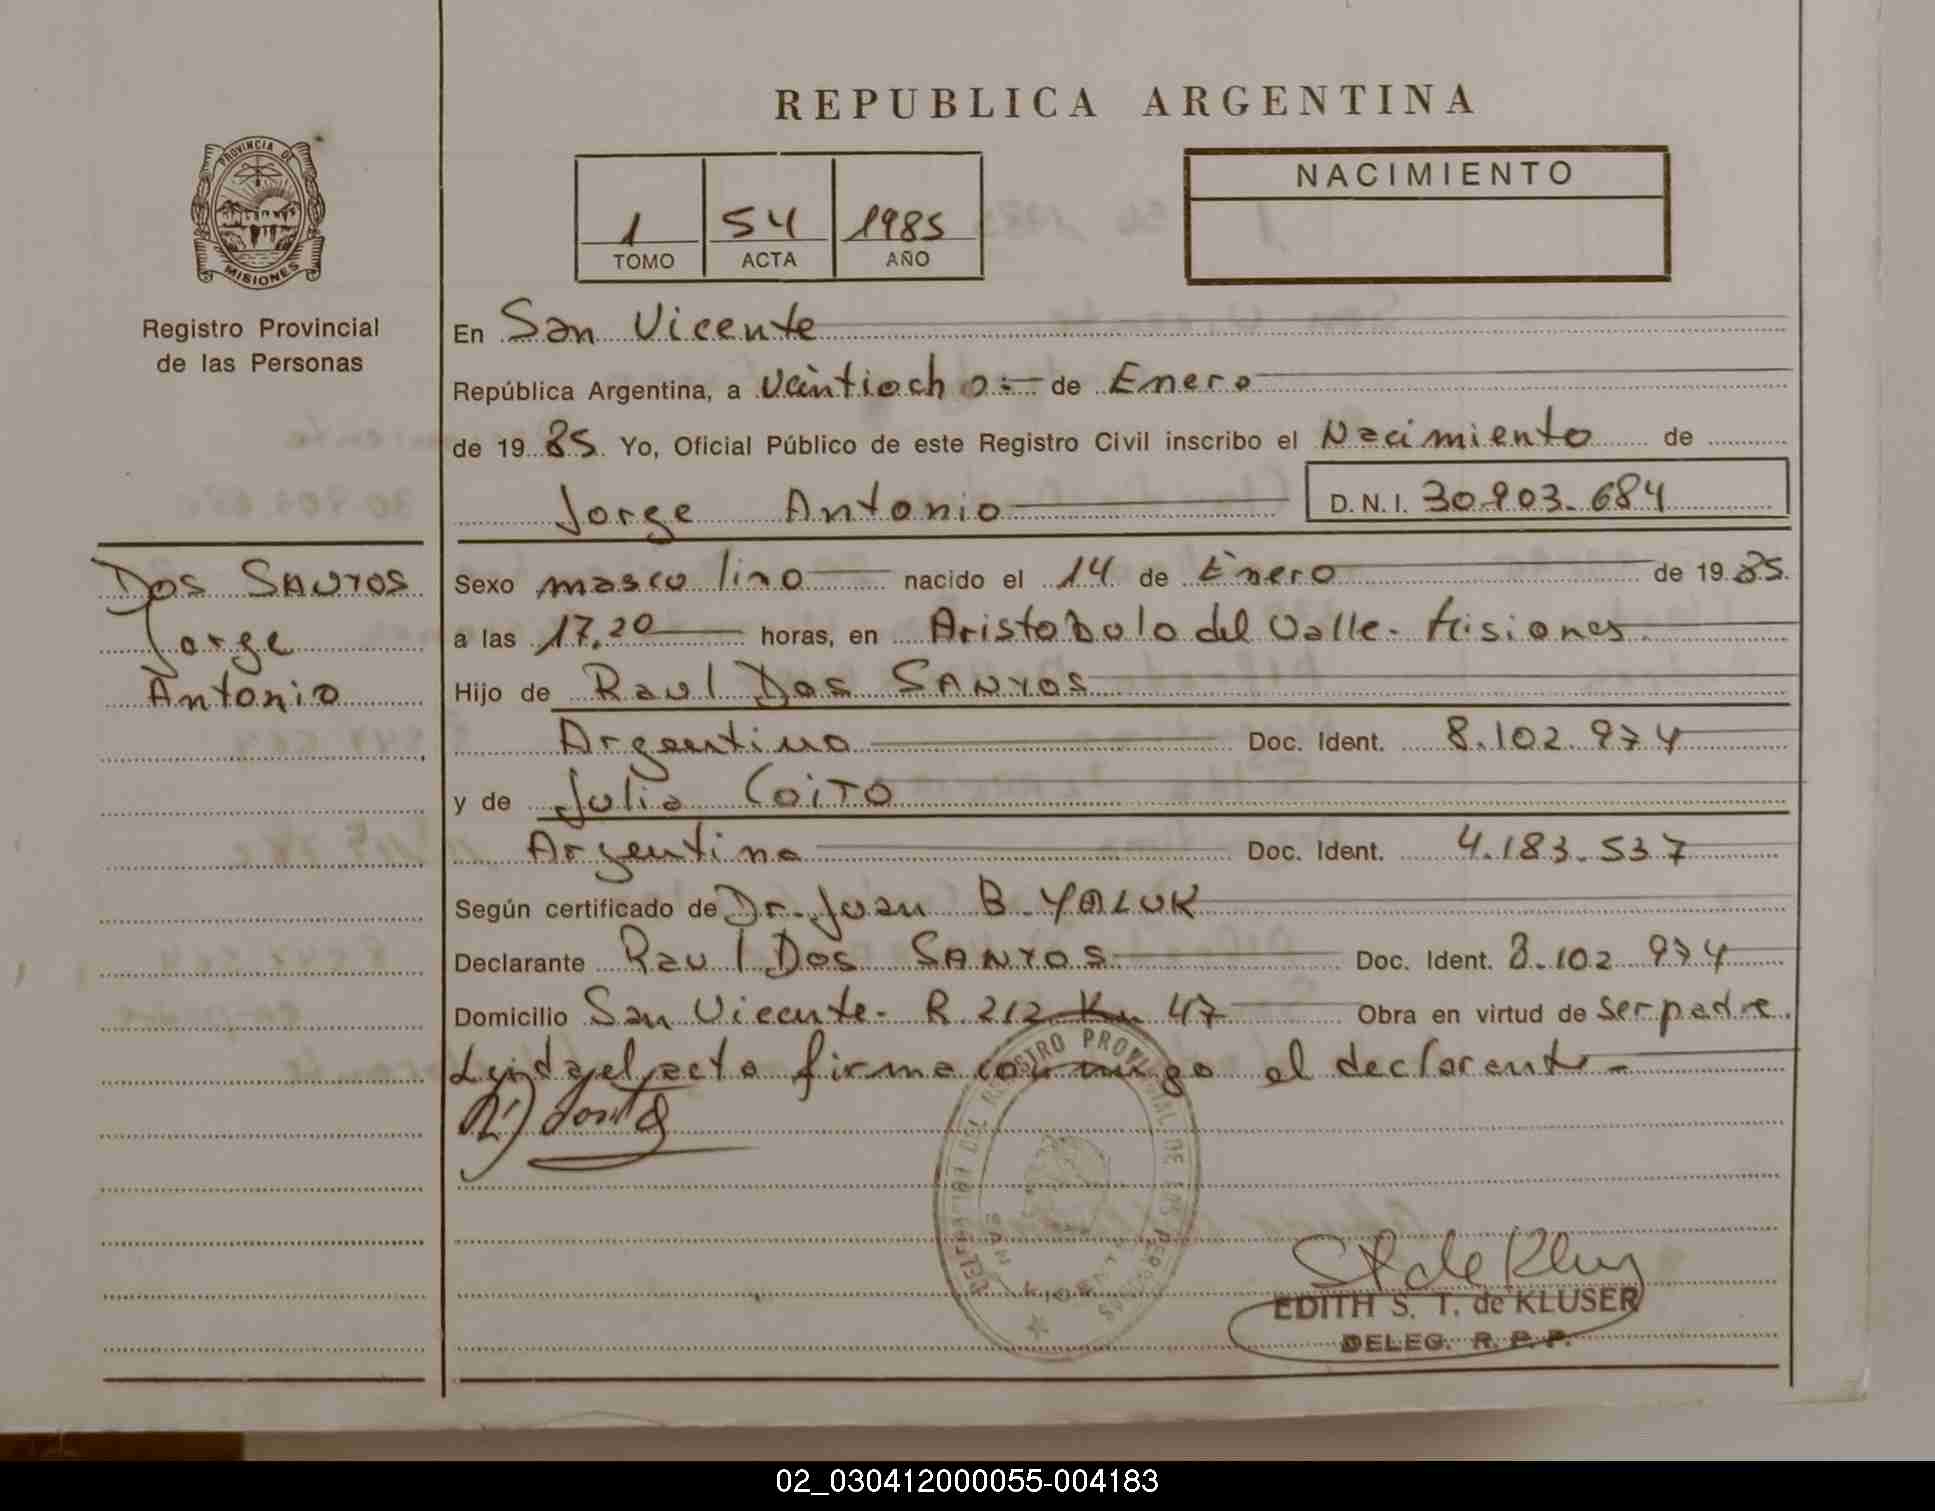 REPUBLICA ARGENTINA
PROVINCIA DE
MISIONES
Registro Provincial
de las Personas
1 54 1985
TOMO ACTA AÑO
NACIMIENTO
En San Vicente
República Argentina, a veintiocho.- de Enero
de 1985 Yo, Oficial Público de este Registro Civil inscribo el Nacimiento de
Jorge Antonio D.N.I. 30.903.684
Dos Santos
Jorge
Antonio
Sexo masculino nacido el 14 de Enero de 1985.
a las 17.20 horas, en Aristobulo del Valle - Misiones
Hijo de Raul Dos Santos
Argentino Doc. Ident. 8.102.974
y de Julia Coito
Argentina Doc. Ident. 4.183.537
Según certificado de Dr. Juan B. YALUK
Declarante Raul Dos Santos Doc. Ident. 8.102.974
Domicilio San Vicente - R. 212 Km 47 Obra en virtud de ser padre.
Leida el acta firma conmigo el declarante -
DELEGACION DEL REGISTRO PROVINCIAL DE LAS PERSONAS
SAN VICENTE
MISIONES
EDITH S. T. de KLUSER
DELEG. R. P. P.
02_030412000055-004183